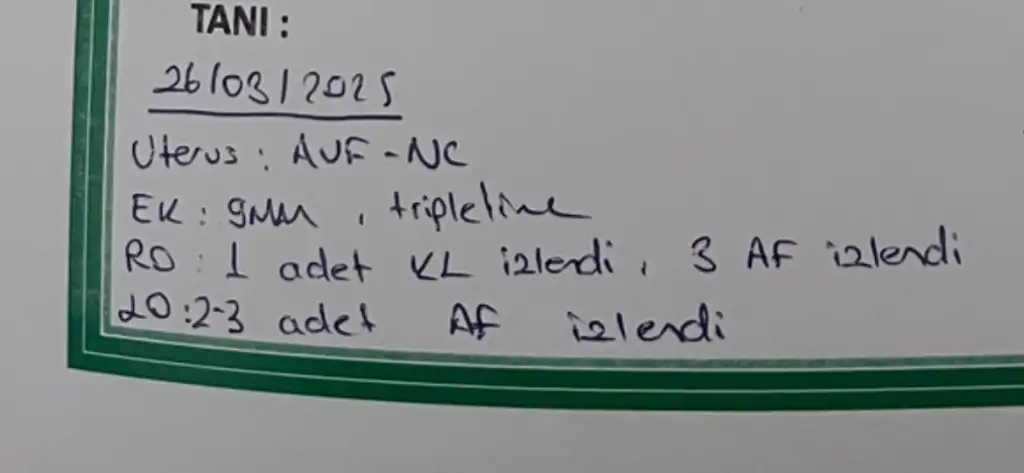 TANI :
26/03/2025
Uterus : AVF - NC
EK : 9mm , tripleline
RO : 1 adet KL izlendi , 3 AF izlendi
LO : 2-3 adet AF izlendi